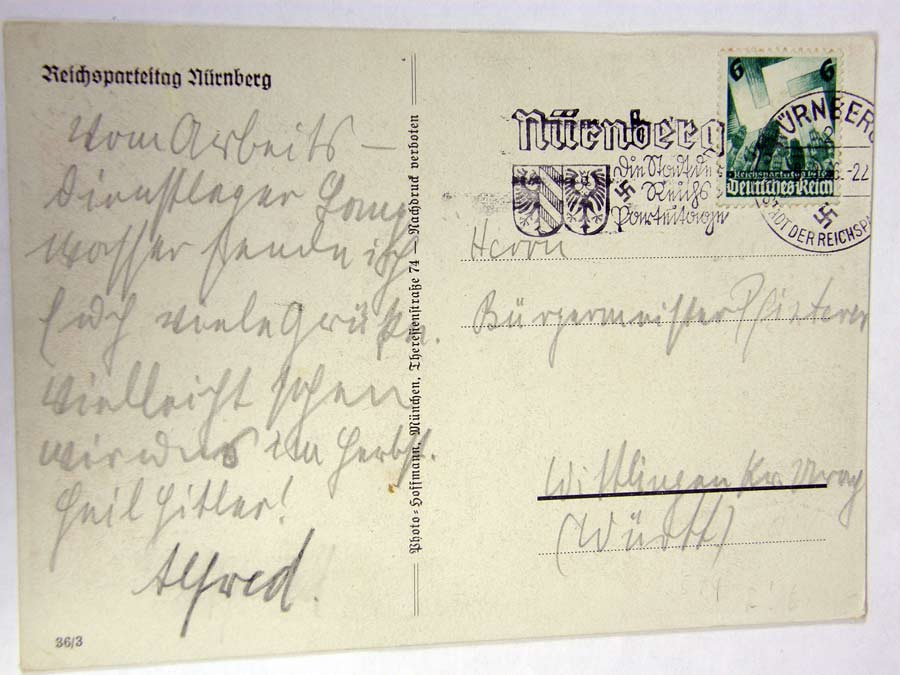 Reichsparteitag Nürnberg
Vom Arbeits-
dienstlager Lang
wasser sende ich
Euch viele Grüße.
Vielleicht sehen
wir uns im Herbst.
Heil Hitler!
Alfred.
36/3
Photo-Hoffmann, München, Theresienstraße 74 — Nachdruck verboten
Nürnberg
Die Stadt der
Reichs
Parteitage
6 6
Reichsparteitag 1936
Deutsches Reich
NÜRNBERG
-22
STADT DER REICHSPA
Herrn
Bürgermeister
Wittlingen Kr. Urach
(Württ)